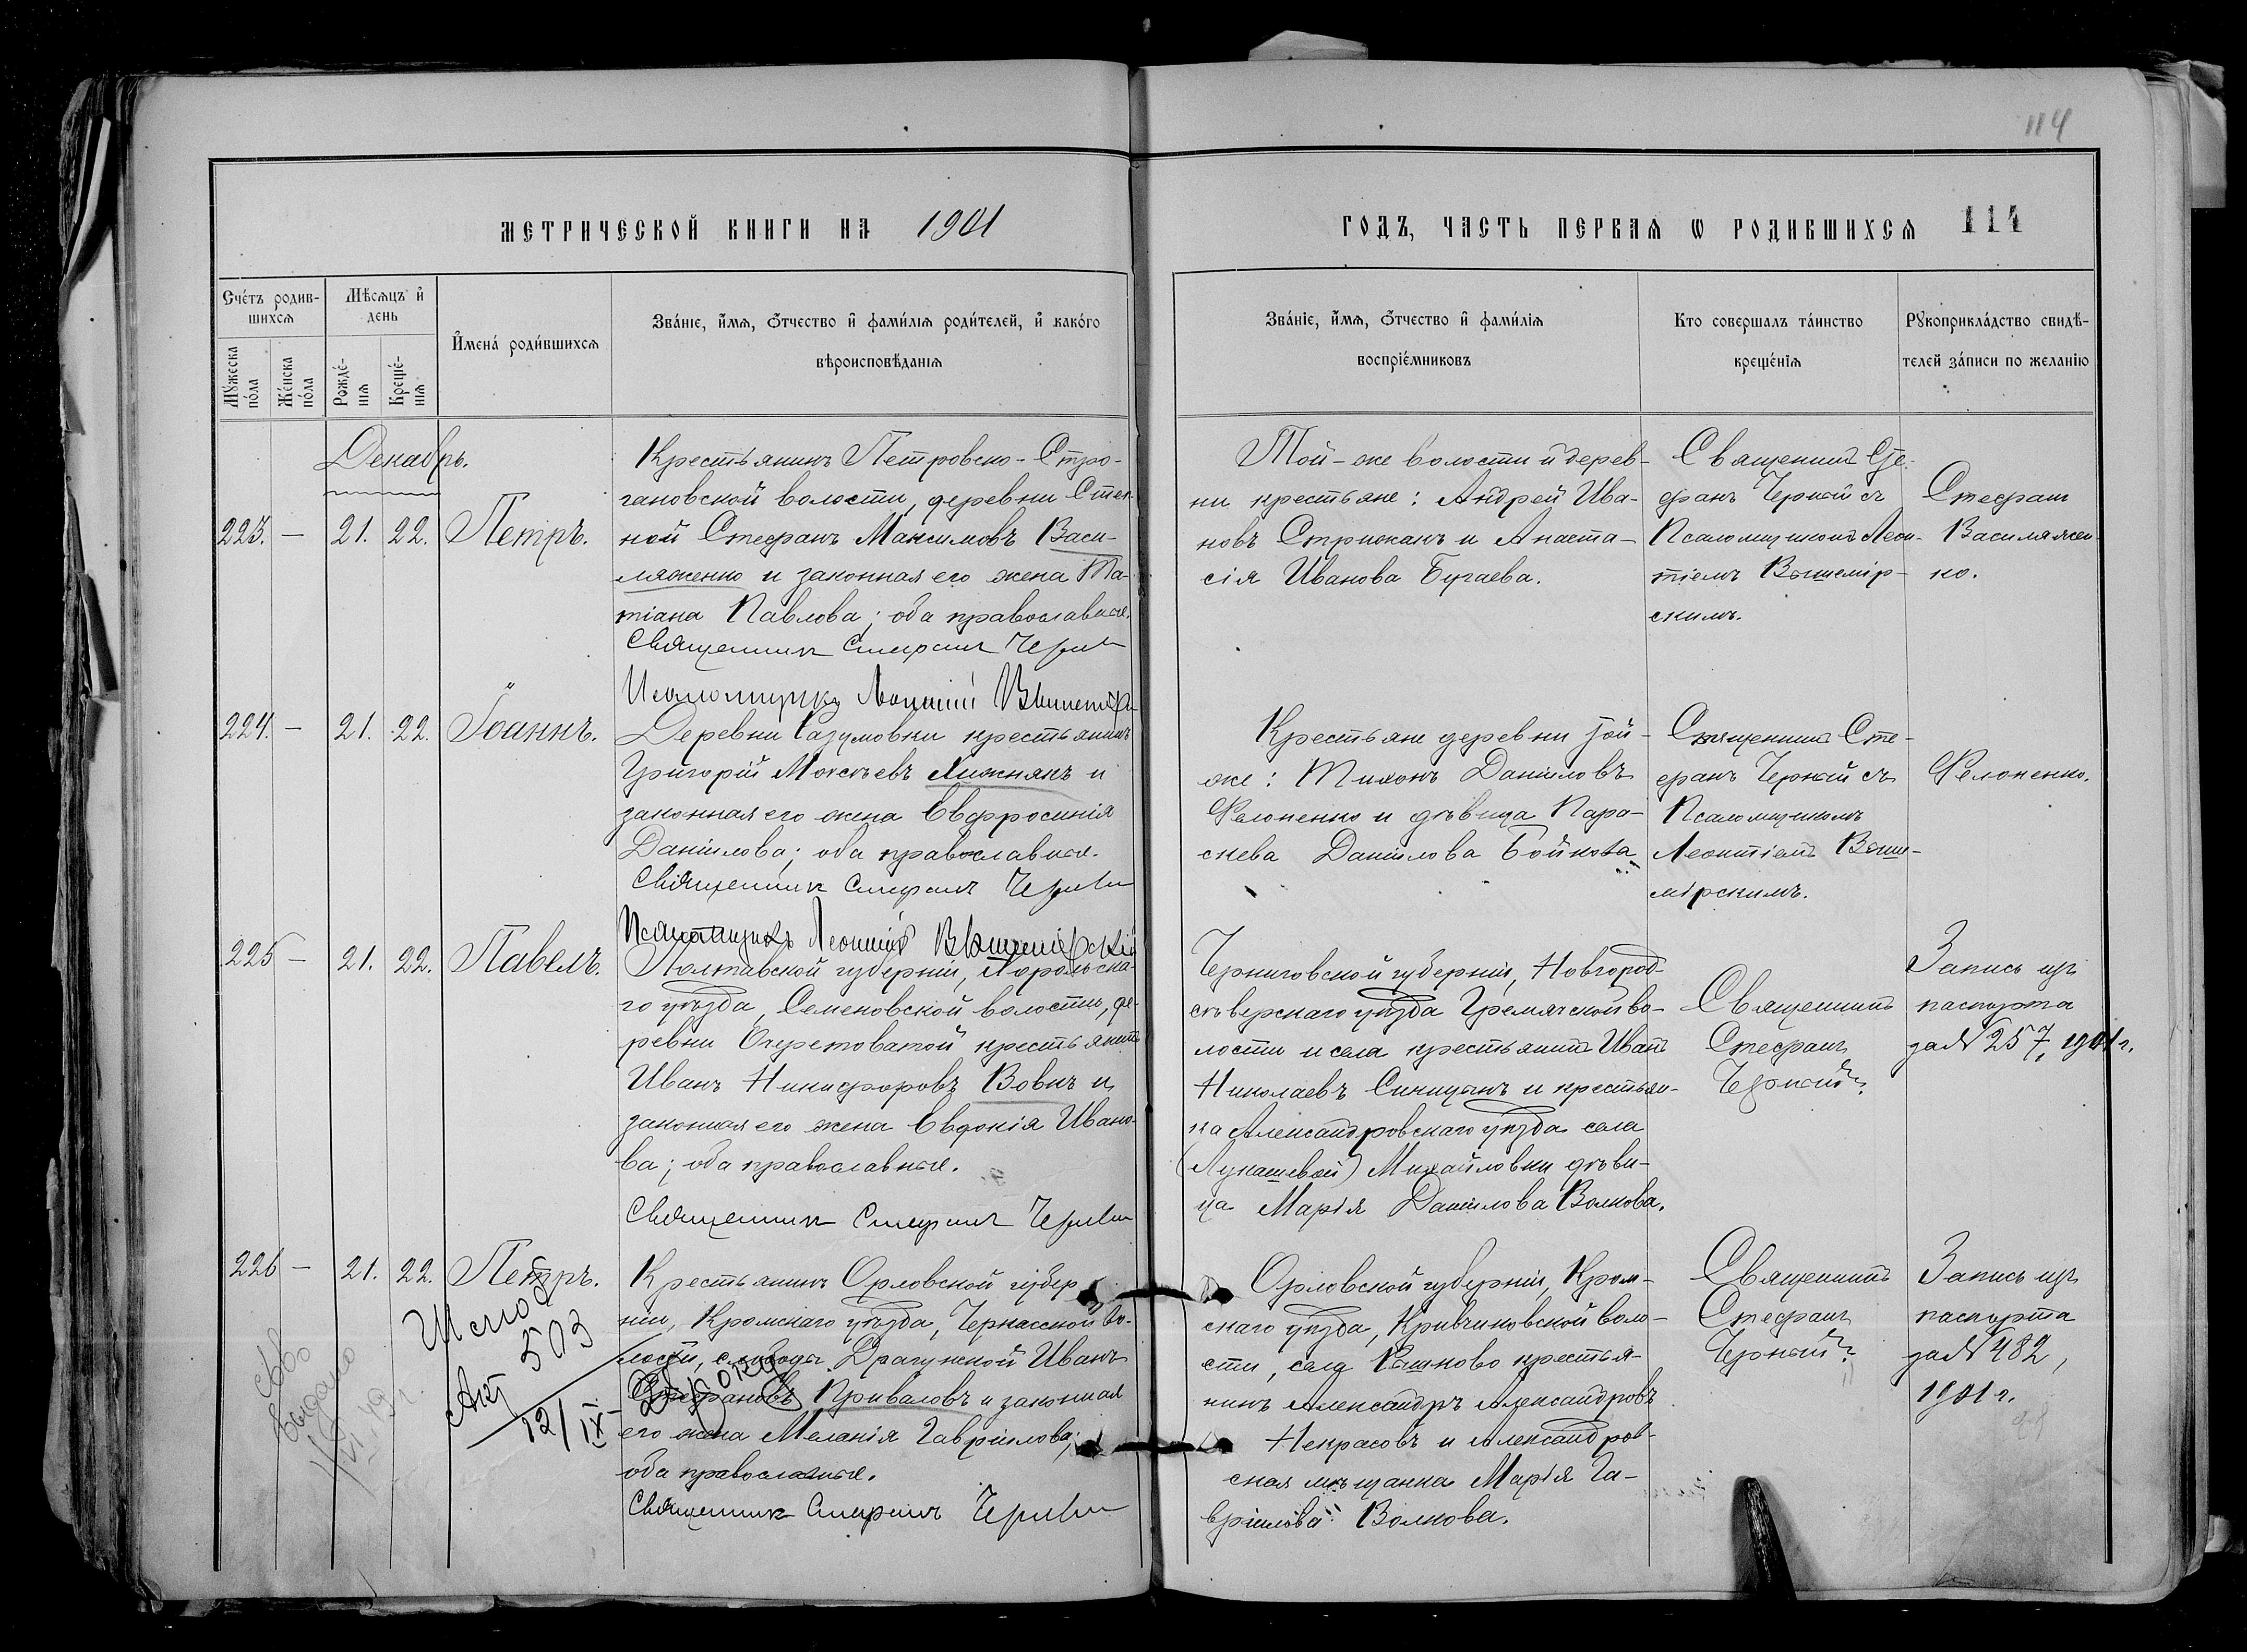 114
МЕТРИЧЕСКОЙ КНИГИ НА 1901
ГОДЪ, ЧАСТЬ ПЕРВАЯ Ѡ РОДИВШИХСЯ 114
Счётъ родив-
шихся
Мѣсяцъ и
день
Мужеска
пола
Женска
пола
Рожде-
нія
Креще-
нія
Имена родившихся
Званіе, имя, отчество и фамилія родителей, и какого
вѣроисповѣданія
Званіе, имя, отчество и фамилія
воспріемниковъ
Кто совершалъ таинство
крещенія
Рукоприкладство свидѣ-
телей записи по желанію
Декабрь.
223. — 21. 22. Петръ.
Крестьянинъ Петровско-Стро-
гановской волости, деревни Степ-
ной Стефанъ Максимовъ Васи-
ляженко и законная его жена Та-
тіана Павлова; оба православные.
Священникъ Стефанъ Черный
Псаломщикъ Леонтій
Той-же волости и дерев-
ни крестьяне: Андрей Ива-
новъ Стрижакъ и Анаста-
сія Иванова Бугаева.
Священникъ Сте-
фанъ Черный съ
Псаломщикомъ Леон-
тіемъ Вышемір-
скимъ.
Стефанъ
Василяжен-
ко.
224. — 21. 22. Іоаннъ.
Деревни Разумовки крестьянинъ
Григорій Моисеевъ Лижнякъ и
законная его жена Евфросинія
Даніилова; оба православные.
Священникъ Стефанъ Черный
Псаломщикъ Леонтій Вышемірскій
Крестьяне деревни той-
же: Тихонъ Даніиловъ
Фелоненко и дѣвица Пара-
скева Даніилова Бойкова
Священникъ Сте-
фанъ Черный съ
Псаломщикомъ
Леонтіемъ Выше-
мірскимъ.
Фелоненко.
225 — 21. 22. Павелъ.
Полтавской губерніи, Хорольска-
го уѣзда, Семеновской волости, де-
ревни Очеретоватой крестьянинъ
Иванъ Никифоровъ Вовкъ и
законная его жена Евдокія Ивано-
ва; оба православные.
Священникъ Стефанъ Черный
Черниговской губерніи, Новгород-
сѣверскаго уѣзда Гремячской во-
лости и села крестьянинъ Иванъ
Николаевъ Синицынъ и крестьян-
ка Александровскаго уѣзда села
(Лукашевой) Михайловки дѣви-
ца Марія Даніилова Волкова.
Священникъ
Стефанъ
Черный
Запись изъ
паспорта
за N 257, 1901 г.
226 — 21. 22. Петръ.
Крестьянинъ Орловской губер-
ніи, Кромскаго уѣзда, Черкасской во-
лости, слободы Драгунской Иванъ
Стефановъ Приваловъ и законная
его жена Меланія Гавріилова;
оба православные.
Священникъ Стефанъ Черный
Орловской губерніи, Кром-
скаго уѣзда, Кривчиковской воло-
сти, села крестья-
нинъ Александръ Александровъ
Некрасовъ и Александров-
ская мѣщанка Марія Га-
вріилова Волкова.
Священникъ
Стефанъ
Черный
Запись изъ
паспорта
за N 482,
1901 г.
Акт 503
12/IX
выдано